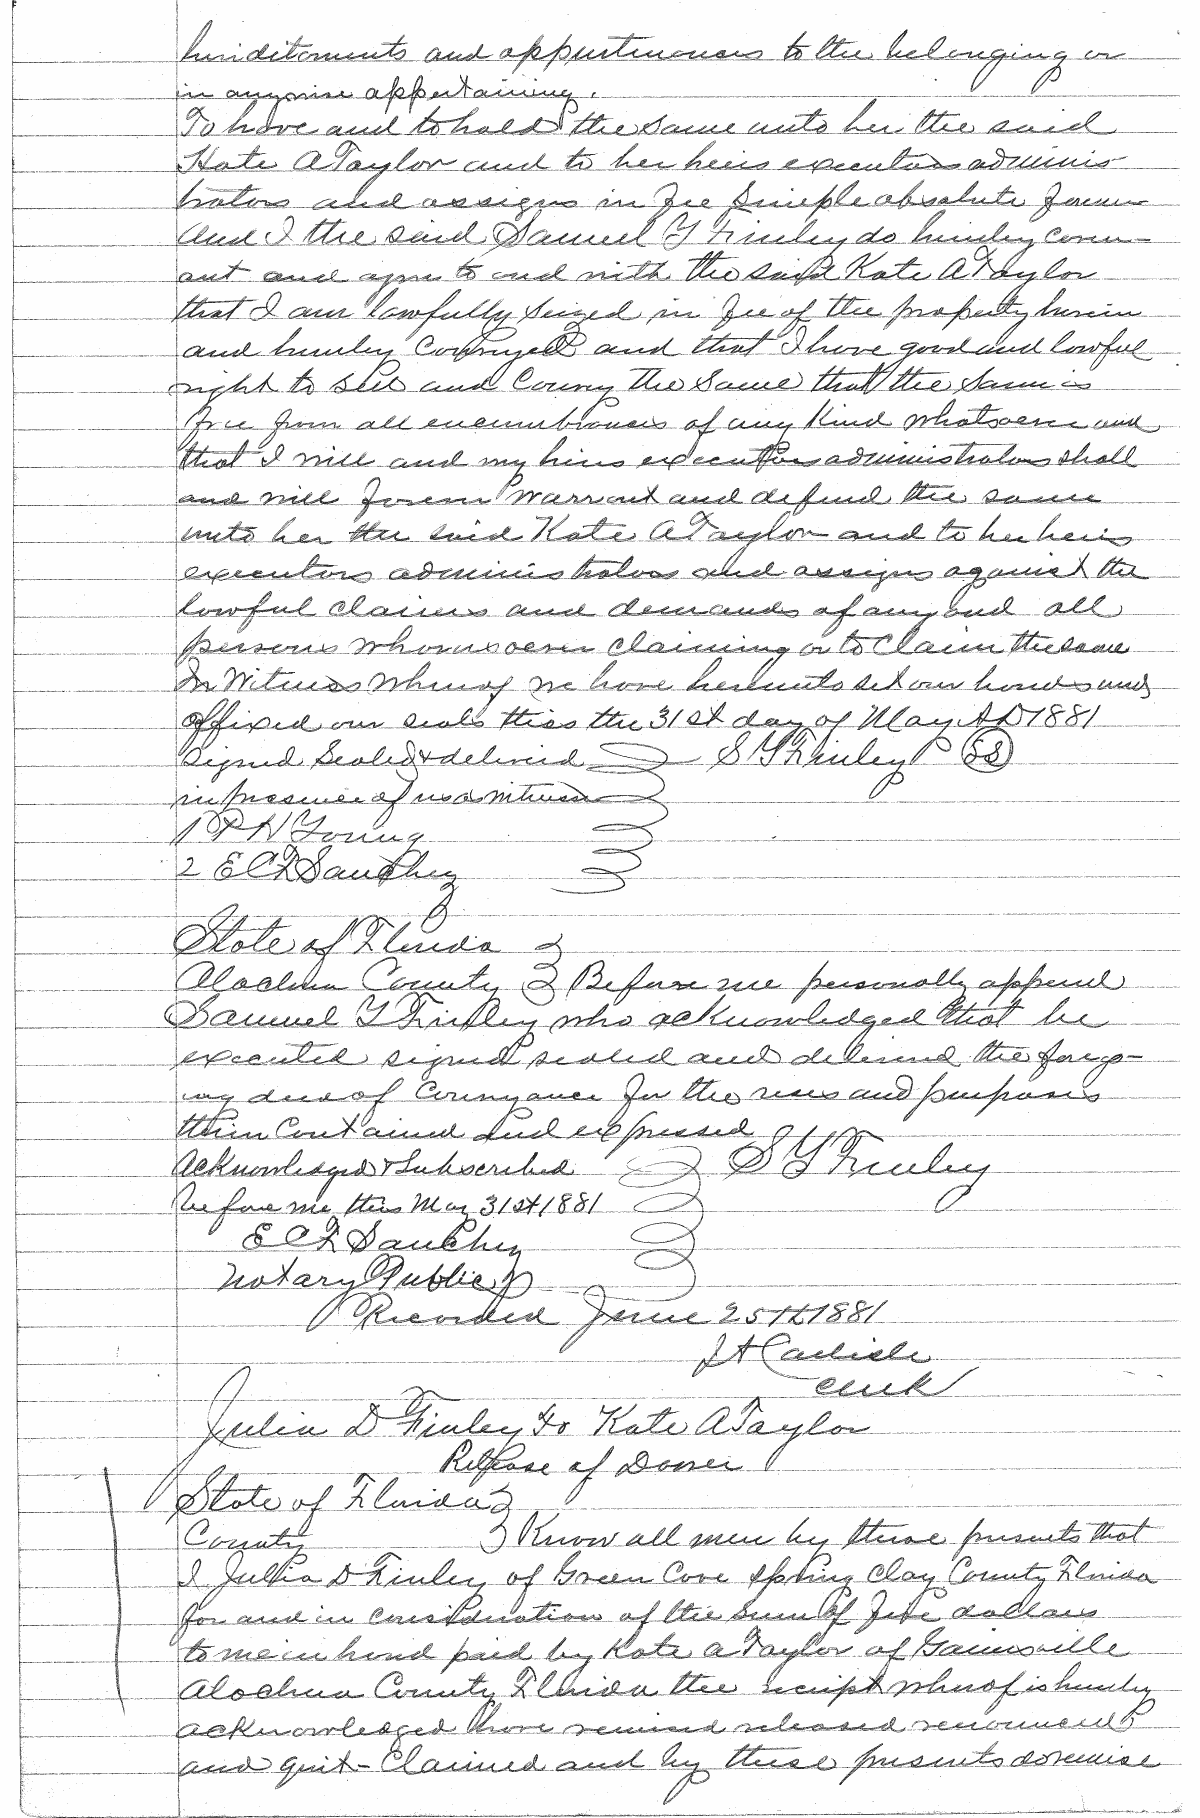 heriditaments and appurtenances to the belonging or
in anywise appertaining.
To have and to hold the same unto her the said
Kate A Taylor and to her heirs executors adminis-
trators and assigns in fee simple absolute forever
And I the said Samuel Y Finley do hereby coven-
ant and agree to and with the said Kate A Taylor
that I am lawfully seized in fee of the property herein
and hereby Conveyed and that I have good and lawful
right to sell and Convey the same that the same is
free from all encumbrances of any Kind whatsoever and
that I will and my heirs executors administrators shall
and will forever warrant and defend the same
unto her the said Kate A Taylor and to her heirs
executors administrators and assigns against the
lawful claims and demands of any and all
persons whomsoever claiming or to Claim the same
In Witness Whereof we have hereunto set our hands and
affixed our seals this the 31st day of May AD 1881
Signed Sealed & delivered S Y Finley SS
in presence of us as witnesses
1 P H Young
2 E C F Sanchez
State of Florida
Alachua County Before me personally appeared
Samuel Y Finley who acknowledged that he
executed signed sealed and delivered the forego-
ing deed of Conveyance for the uses and purposes
therein Contained and expressed
Acknowledged & Subscribed S Y Finley
before me this May 31st 1881
E C F Sanchez
Notary Public
Recorded June 25th 1881
J A Carlisle
Clerk
Julia D Finley to Kate A Taylor
Release of Dower
State of Florida
County Know all men by these presents that
I Julia D Finley of Green Cove Spring Clay County Florida
for and in consideration of the sum of five dollars
to me in hand paid by Kate A Taylor of Gainesville
Alachua County Florida the receipt whereof is hereby
acknowledged have remised released renounced
and quit-Claimed and by these presents do remise